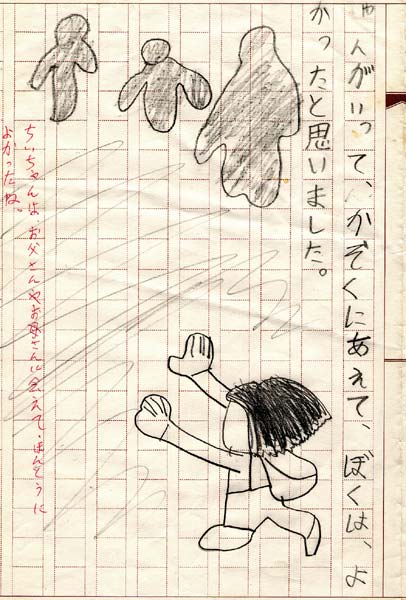 ゃんがいって、かぞくにあえて、ぼくは、よ
かったと思いました。
ちいちゃんは、お父さんやお母さんに会えて、ほんとうに
よかったね。